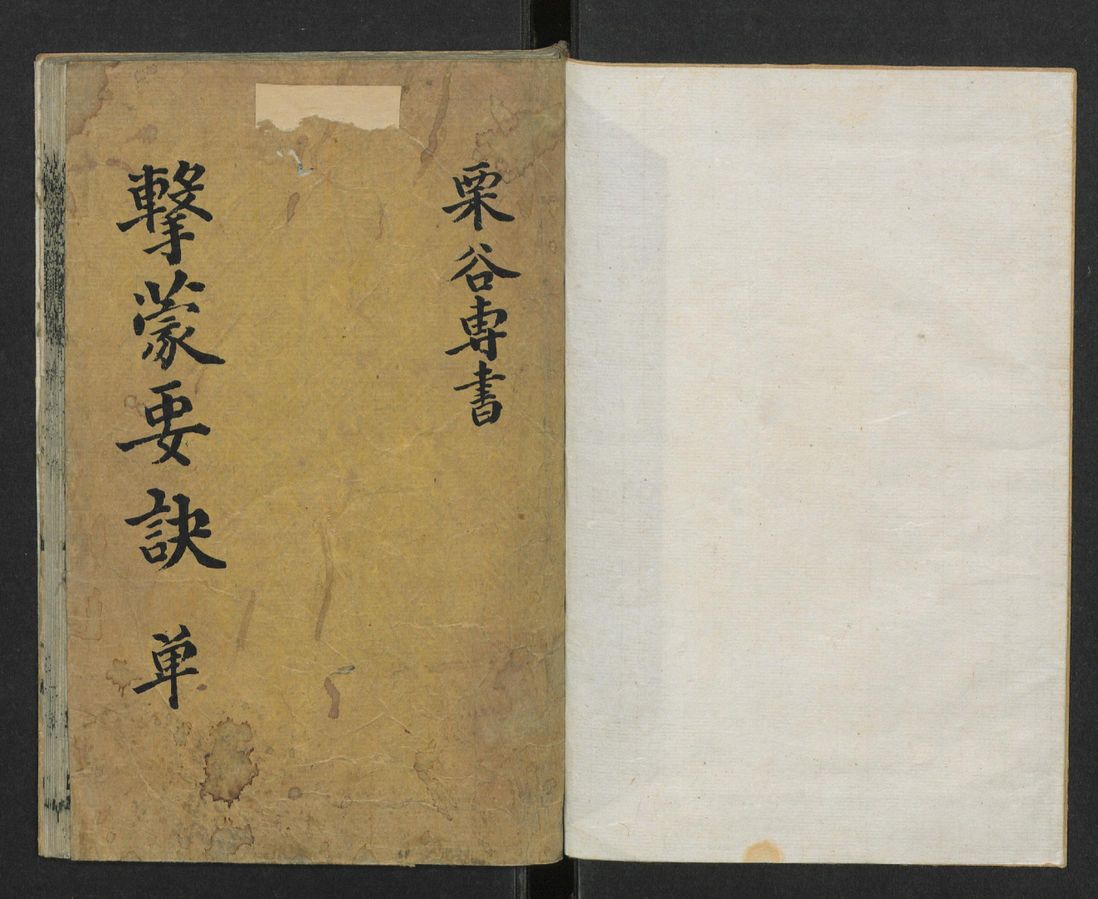 栗谷專書
擊蒙要訣 単